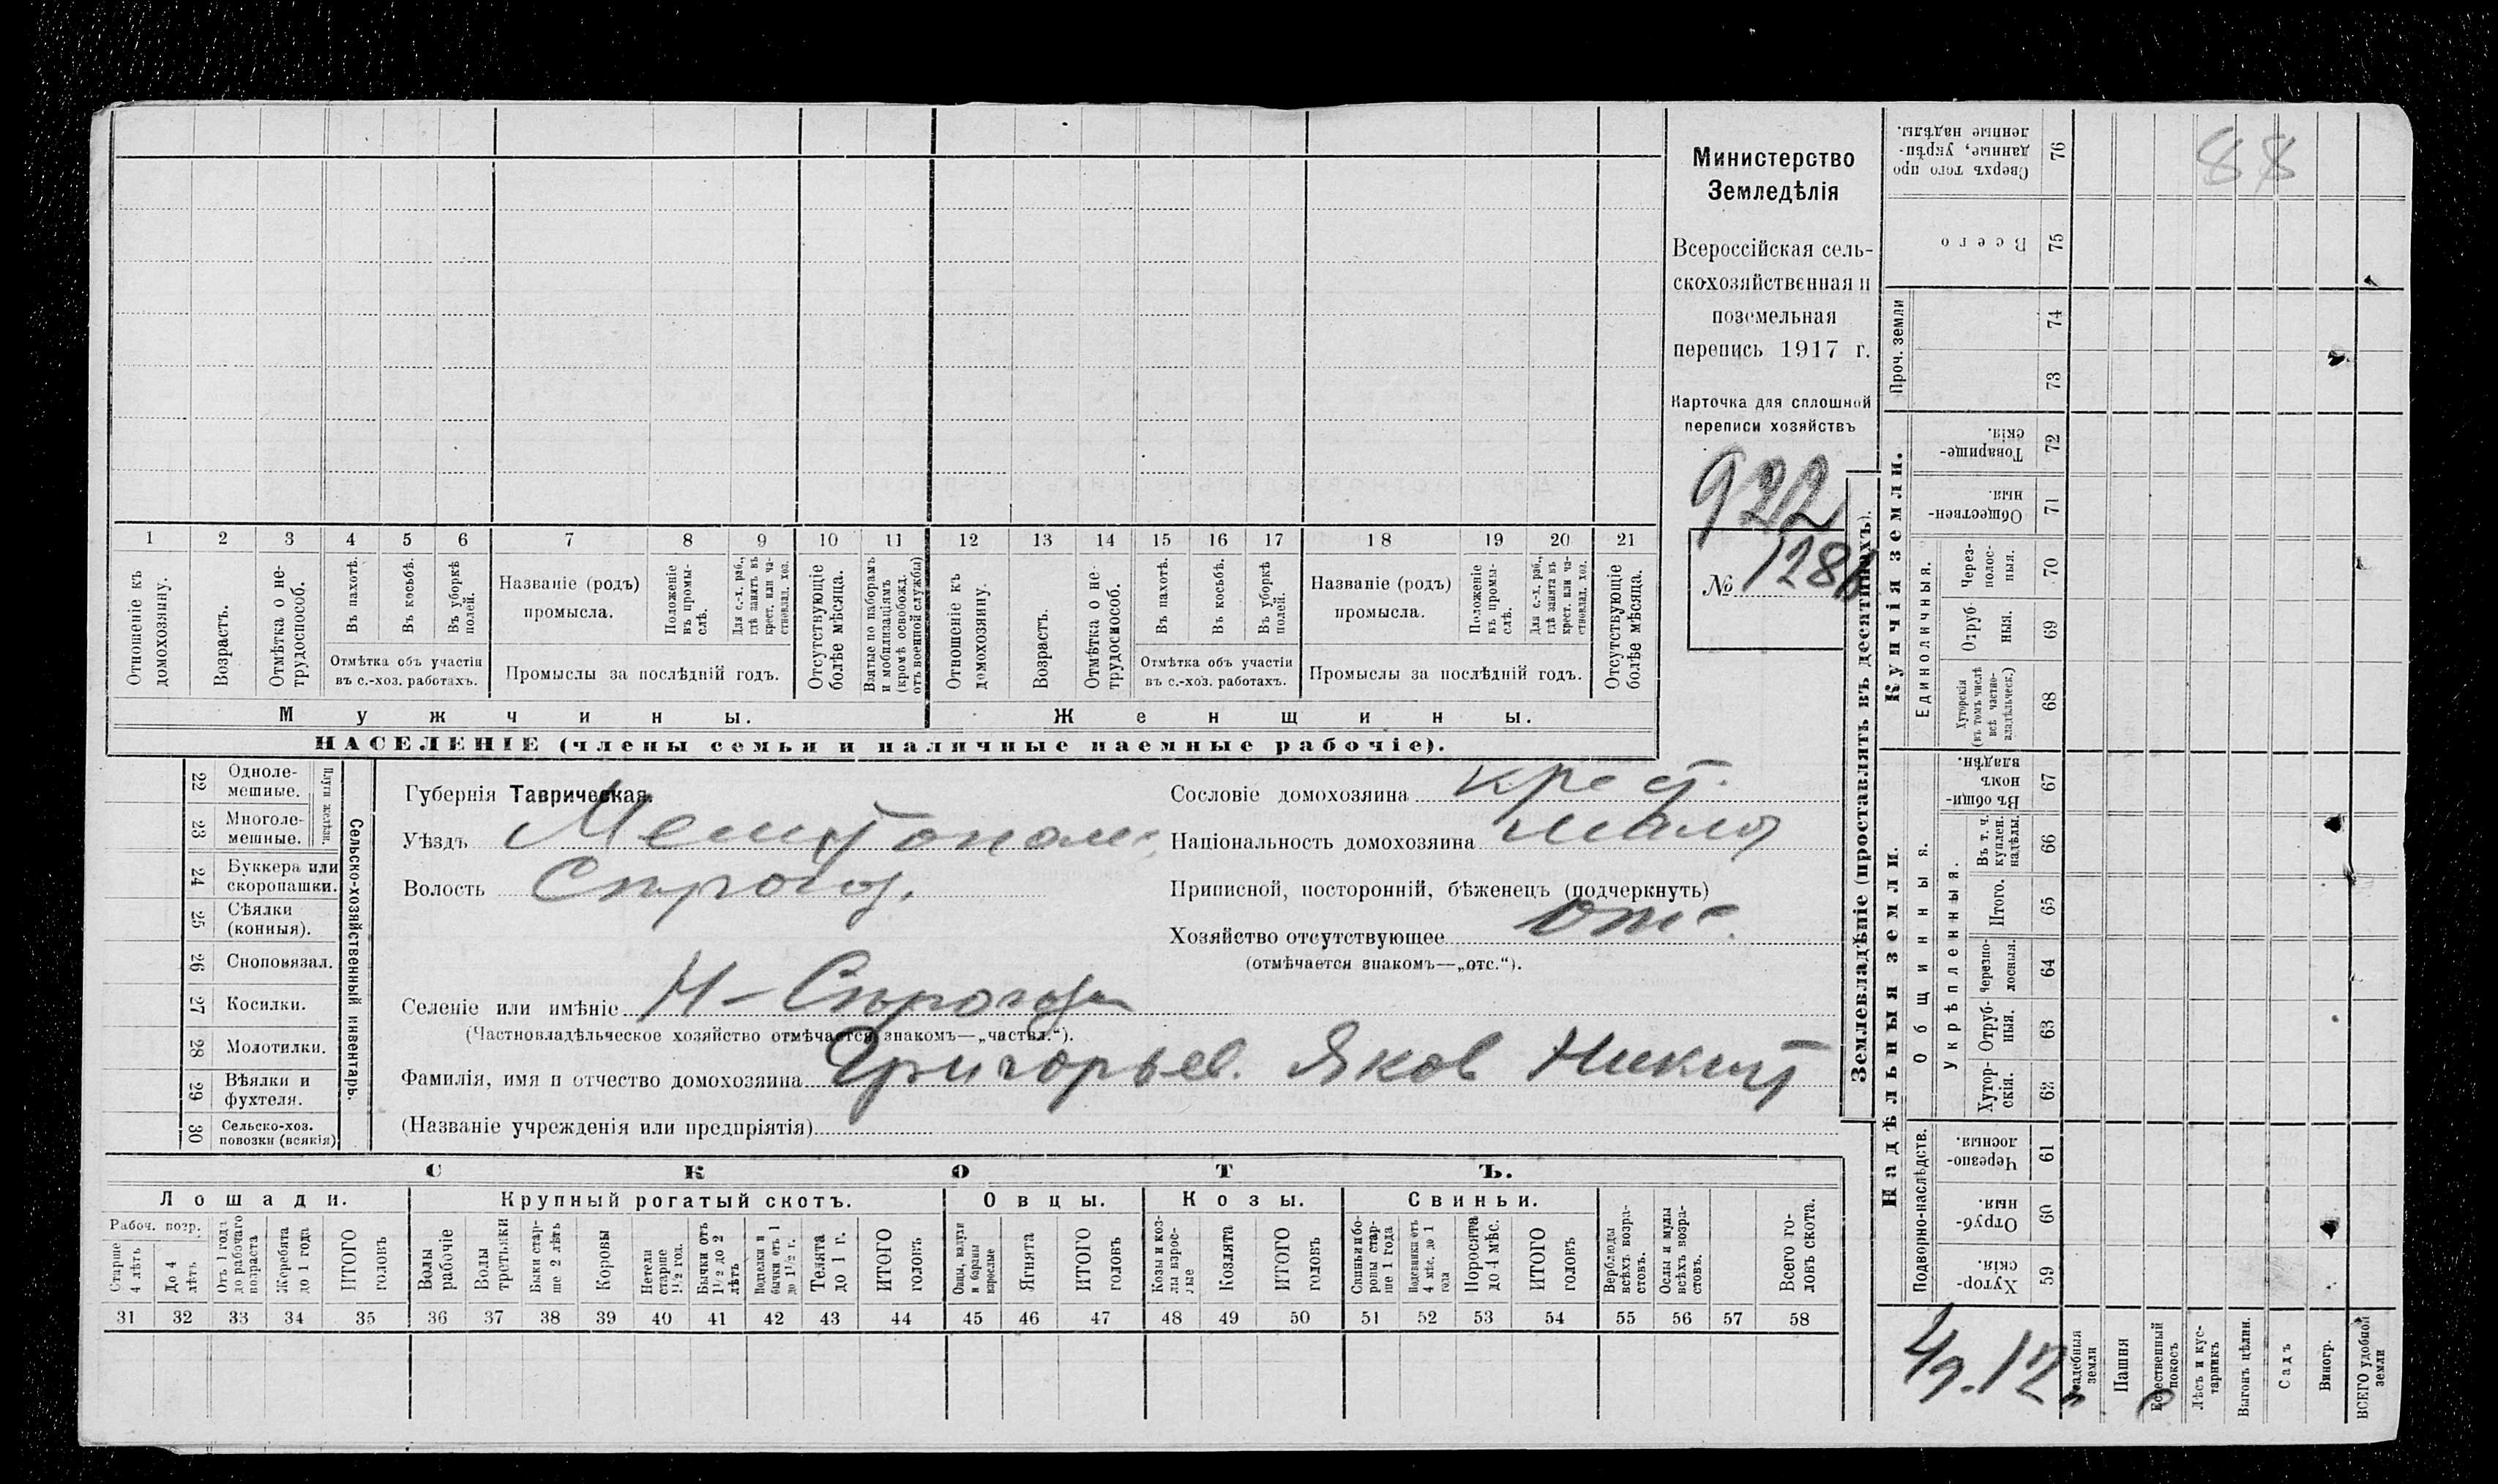 1 2 3 4 5 6 7 8 9 10 11 12 13 14 15 16 17 18 19 20 21
Отношеніе къ домохозяину.
Возрастъ.
Отмѣтка о нетрудоспособ.
Въ пахотѣ.
Въ косьбѣ.
Въ уборкѣ полей.
Отмѣтка объ участіи
въ с.-хоз. работахъ.
Названіе (родъ)
промысла.
Положеніе въ промыслѣ.
Для с.-х. раб., гдѣ занятъ въ крест. или частновлад. хоз.
Промыслы за послѣдній годъ.
Отсутствующіе болѣе мѣсяца.
Взятые по наборамъ и мобилизаціямъ (кромѣ освобожд. отъ военной службы)
Отношеніе къ домохозяину.
Возрастъ.
Отмѣтка о нетрудоспособ.
Въ пахотѣ.
Въ косьбѣ.
Въ уборкѣ полей.
Отмѣтка объ участіи
въ с.-хоз. работахъ.
Названіе (родъ)
промысла.
Положеніе въ промыслѣ.
Для с.-х. раб., гдѣ занята въ крест. или частновлад. хоз.
Промыслы за послѣдній годъ.
Отсутствующіе болѣе мѣсяца.
Мужчины. Женщины.
НАСЕЛЕНІЕ (члены семьи и наличные наемные рабочіе).
Министерство
Земледѣлія
Всероссійская сель-
скохозяйственная и
поземельная
перепись 1917 г.
Карточка для сплошной
переписи хозяйствъ
922
№ 1286
Сельско-хозяйственный инвентарь.
22 Одноле-
мешные.
23 Многоле-
мешные.
24 Буккера или
скоропашки.
25 Сѣялки
(конныя).
26 Сноповязал.
27 Косилки.
28 Молотилки.
29 Вѣялки и
фухтеля.
30 Сельско-хоз.
повозки (всякія)
Губернія Таврическая.
Уѣздъ Мелитопол
Волость Сѣрогоз.
Селеніе или имѣніе Н-Сѣрогозы
(Частновладѣльческое хозяйство отмѣчается знакомъ—„частвл.“).
Фамилія, имя и отчество домохозяина Григорьев. Яков Никит
(Названіе учрежденія или предпріятія)
Сословіе домохозяина крест.
Національность домохозяина мало
Приписной, посторонній, бѣженецъ (подчеркнуть)
Хозяйство отсутствующее отс.
(отмѣчается знакомъ—„отс.“).
СКОТЪ.
Лошади. Крупный рогатый скотъ. Овцы. Козы. Свиньи.
Рабоч. возр.
Старше 4 лѣтъ
До 4 лѣтъ
Отъ 1 года до рабочаго возраста
Жеребята до 1 года
ИТОГО головъ
Волы рабочіе
Волы третьяки
Быки старше 2 лѣтъ
Коровы
Нетели старше 1½ год.
Бычки отъ 1½ до 2 лѣтъ
Подтелки и бычки отъ 1 до 1½ г.
Телята до 1 г.
ИТОГО головъ
Овцы, валухи и бараны взрослые
Ягнята
ИТОГО головъ
Козы и козлы взрослые
Козлята
ИТОГО головъ
Свиньи и боровы старше 1 года
Подсвинки отъ 4 мѣс. до 1 года
Поросята до 4 мѣс.
ИТОГО головъ
Верблюды всѣхъ возрастовъ.
Ослы и мулы всѣхъ возрастовъ.
Всего головъ скота.
31 32 33 34 35 36 37 38 39 40 41 42 43 44 45 46 47 48 49 50 51 52 53 54 55 56 57 58
Землевладѣніе (проставлять въ десятинахъ).
Купчія земли.
Надѣльныя земли.
Сверхъ того проданные, укрѣпленные надѣлы. 76
88
Всего 75
Проч. земли
74
73
Товарищескія. 72
Общественныя. 71
Единоличныя.
Черезполосныя. 70
Отрубныя. 69
Хуторскія (въ томъ числѣ всѣ частновладѣльческ.) 68
Общинныя.
Въ общинномъ владѣн. 67
Укрѣпленныя.
Въ т. ч. куплен. надѣлы. 66
Итого. 65
Черезполосныя. 64
Отрубныя. 63
Хуторскія. 62
Подворно-наслѣдств.
Черезполосныя. 61
Отрубныя. 60
Хуторскія. 59
Усадебныя земли
Пашня
Естественный покосъ
Лѣсъ и кустарникъ
Выгонъ цѣлин.
Садъ
Виногр.
ВСЕГО удобной земли